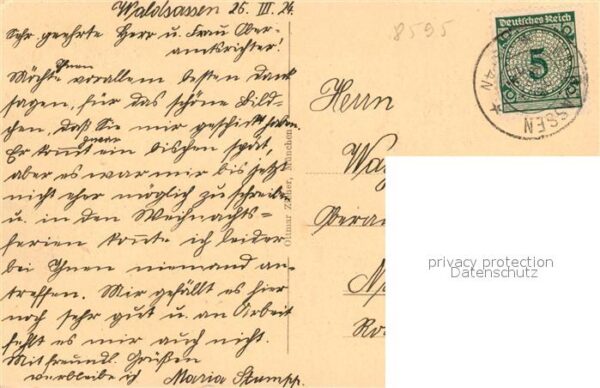 Waldsassen 26. III. 24.
Sehr geehrte Herr u. Frau Ober-
amtsrichter!
Möchte Ihnen vorallem besten Dank
sagen, für das schöne Bild-
chen, daß Sie mir geschickt haben.
Er kommt zwar ein bischen spät,
aber es war mir bis jetzt
nicht eher möglich zu schreiben
u. in den Weihnachts-
ferien konnte ich leider
bei Ihnen niemand an-
treffen. Mir gefällt es hier
noch sehr gut u. an Arbeit
fehlt es mir auch nicht.
Mit freundl. Grüßen
verbleibe ich Maria Stumpf.
Ottmar Zieher, München
8595
Deutsches Reich
5
SSEN
Herrn
Wa
Oberam
Ro
privacy protection
Datenschutz